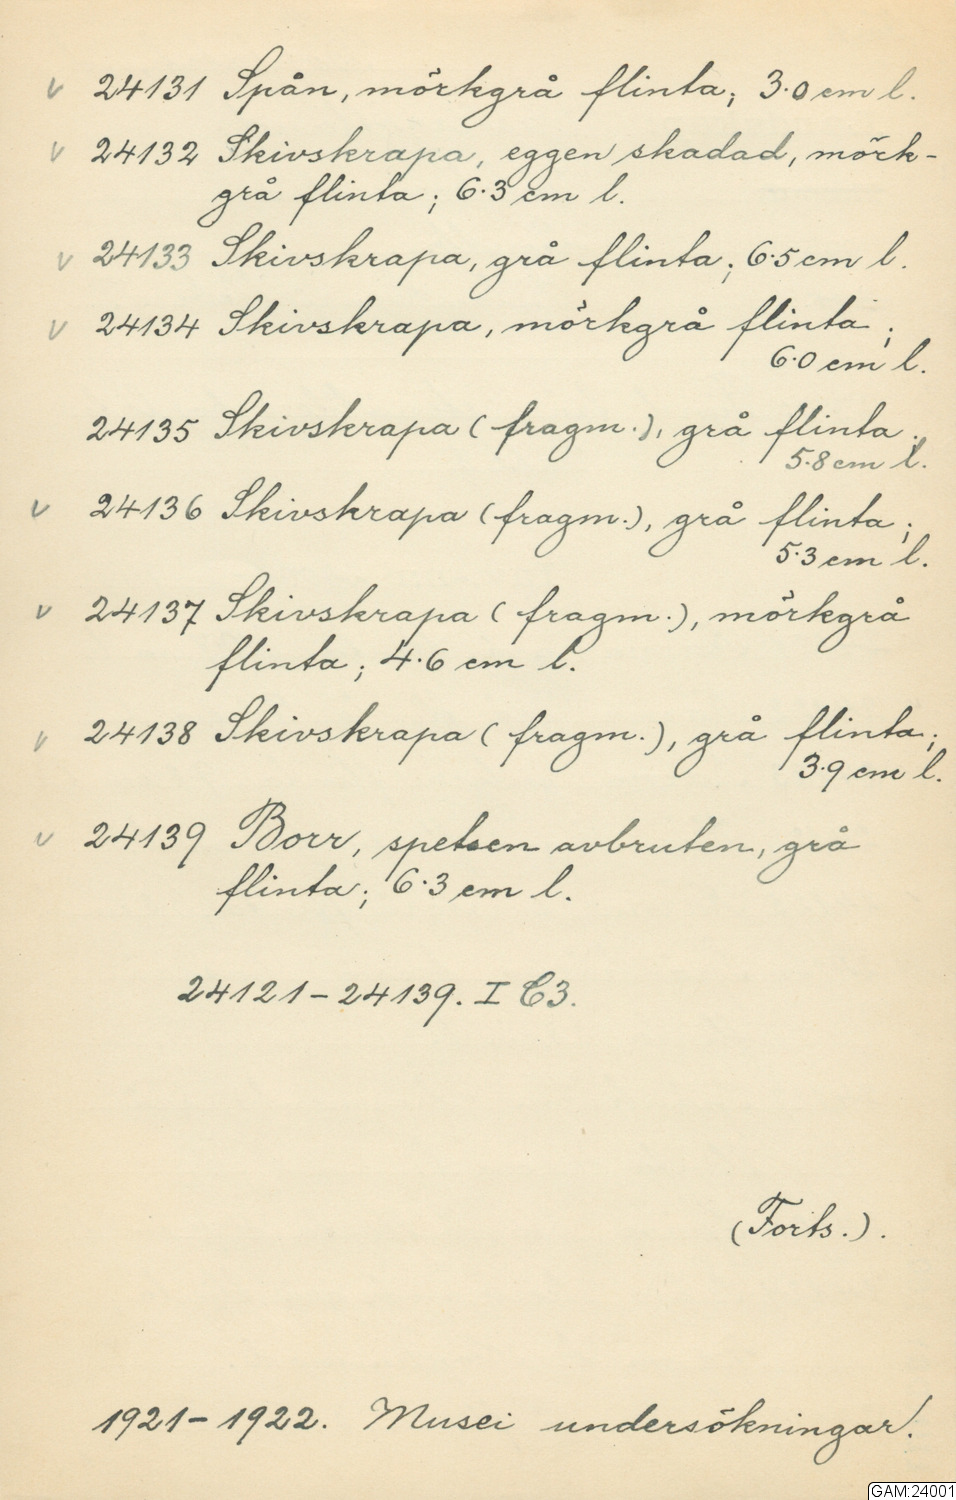 v 24131 Spån, mörkgrå flinta; 3.0 cm l.
v 24132 Skivskrapa, eggen skadad, mörk-
grå flinta; 6.3 cm l.
v 24133 Skivskrapa, grå flinta; 6.5 cm l.
v 24134 Skivskrapa, mörkgrå flinta;
6.0 cm l.
24135 Skivskrapa (fragm.), grå flinta;
5.8 cm l.
v 24136 Skivskrapa (fragm.), grå flinta;
5.3 cm l.
v 24137 Skivskrapa (fragm.), mörkgrå
flinta; 4.6 cm l.
v 24138 Skivskrapa (fragm.), grå flinta;
3.9 cm l.
v 24139 Borr, spetsen avbruten, grå
flinta; 6.3 cm l.
24121–24139. I C3.
(Forts.).
1921–1922. Musei undersökningar!
GAM:24001